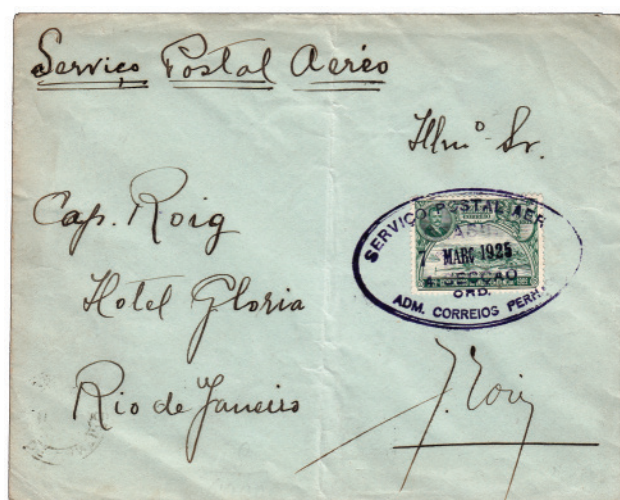 Serviço Postal Aereo
Illmº Sr.
Cap. Roig
Hotel Gloria
Rio de Janeiro
SERVIÇO POSTAL AER
7 - MARÇ 1925
4ª SECÇÃO
ORD.
ADM. CORREIOS PERN.
J. Roig